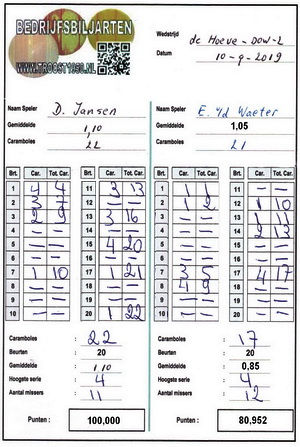 BEDRIJFSBILJARTEN
WWW.TROOST1950.NL
Wedstrijd : de Hoeve - DOW-2
Datum : 10-9-2019
Naam Speler : D. Jansen
Gemiddelde : 1,10
Caramboles : 22
Naam Speler : E. vd Waeter
Gemiddelde : 1,05
Caramboles : 21
Brt. Car. Tot. Car. Brt. Car. Tot. Car. Brt. Car. Tot. Car. Brt. Car. Tot. Car.
1 4 4 11 3 13 1 1 1 11 — —
2 3 7 12 — — 2 1 2 12 1 10
3 2 9 13 3 16 3 — — 13 1 11
4 — — 14 — — 4 — — 14 2 13
5 — — 15 4 20 5 — — 15 — —
6 — — 16 — — 6 — — 16 — —
7 1 10 17 1 21 7 3 5 17 4 17
8 — — 18 — — 8 4 9 18 — —
9 — — 19 — — 9 — — 19 — —
10 — — 20 1 22 10 — — 20 — —
Caramboles : 22
Beurten : 20
Gemiddelde : 1,10
Hoogste serie : 4
Aantal missers : 11
Punten : 100,000
Caramboles : 17
Beurten : 20
Gemiddelde : 0,85
Hoogste serie : 4
Aantal missers : 12
Punten : 80,952